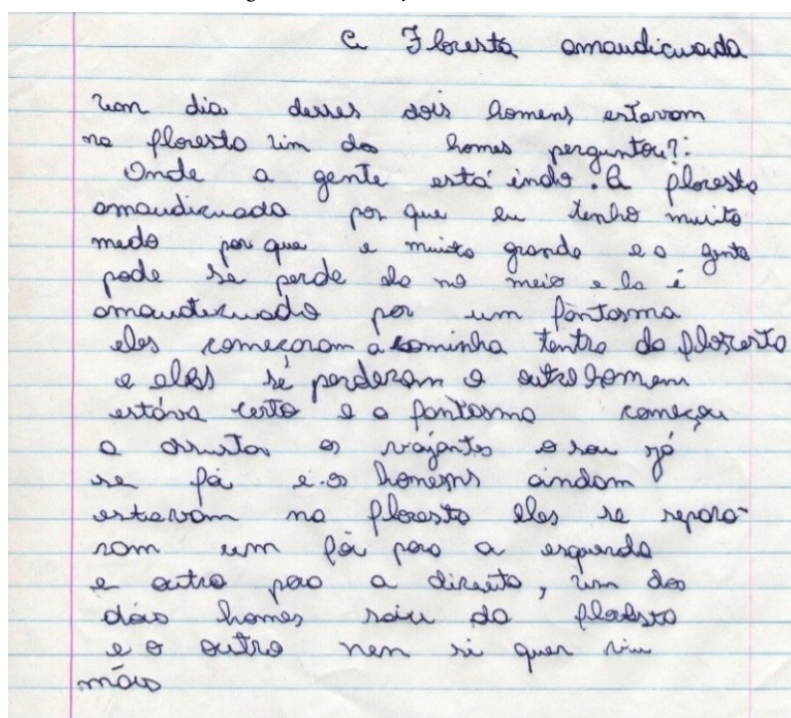 A Floresta amaudicuada
um dia desses dois homens estavam
na floresta um do homes perguntou?:
Onde a gente está indo. A floresta
amaudicuada por que eu tenho muito
medo por que e muito grande e a gente
pode se perde ela no meio e la é
amaudicuada por um fantasma
eles começaram a caminha tentro da floresta
e eles sé perderam o outro homem
estáva certo e o fantasma começou
a assustar os viajantes o sou jó
se fói e os homesns aindam
estavam na floresta eles se separa-
ram um fói para a esquerda
e outro para a direita, um dos
dois homes saiu da floresta
e o outro nem si quer viu
máis